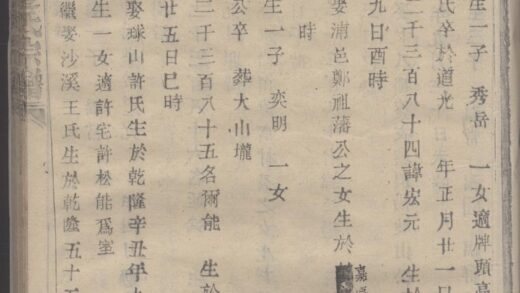 生一子 秀岳 一女適牌頭高
氏卒於道光 年正月廿一日
二千三百八十四諱宏元 生於
九日酉時
娶浦邑鄭祖藩公之女生於
時
生一子 奕明 一女
公卒 葬大山壠
二千三百八十五名爾能 生於
廿五日巳時
娶球山許氏生於乾隆辛丑年
生一女適許宅許松能爲室
繼娶沙溪王氏生於乾隆五十